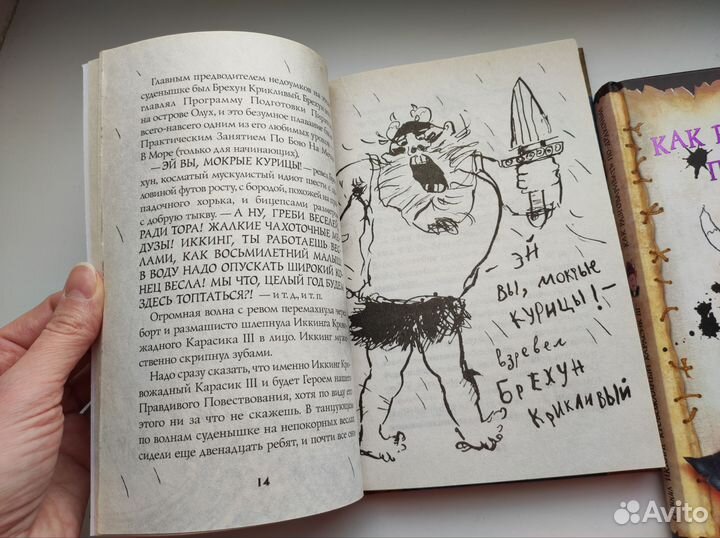 Главным предводителем недоумков на этом
суденышке был Брехун Крикливый. Брехун
главлял Программу Подготовки Пира
на острове Олух, и это безумное плавание бы
всего-навсего одним из его любимых уроков
Практическим Занятием По Бою На Ме
В Море (только для начинающих).
—ЭЙ ВЫ, МОКРЫЕ КУРИЦЫ! — ревел Бре-
хун, косматый мускулистый идиот шести с по
ловиной футов росту, с бородой, похожей на при
падочного хорька, и бицепсами размером
с добрую тыкву. — А НУ, ГРЕБИ ВЕСЕЛЕ
РАДИ ТОРА! ЖАЛКИЕ ЧАХОТОЧНЫЕ МЕ
ДУЗЫ! ИККИНГ, ТЫ РАБОТАЕШЬ ВЕС
ЛАМИ, КАК ВОСЬМИЛЕТНИЙ МАЛЫШ
В ВОДУ НАДО ОПУСКАТЬ ШИРОКИЙ КО
НЕЦ ВЕСЛА! МЫ ЧТО, ЦЕЛЫЙ ГОД БУДЕМ
ЗДЕСЬ ТОПТАТЬСЯ?! — и т. д., и т. п.
Огромная волна с ревом перемахнула через
борт и размашисто шлепнула Иккинга Крово-
жадного Карасика III в лицо. Иккинг муже
ственно скрипнул зубами.
Надо сразу сказать, что именно Иккинг Кро-
вожадный Карасик III и будет Героем нашего
Правдивого Повествования, хотя по виду его
этого ни за что не скажешь. В танцующем
по волнам суденышке на непокорных веслах
сидели еще двенадцать ребят, и почти все они
14
— ЭЙ
ВЫ, МОКРЫЕ
КУРИЦЫ! —
взревел
БРЕХУН
КРИКЛИВЫЙ
КАК
Avito